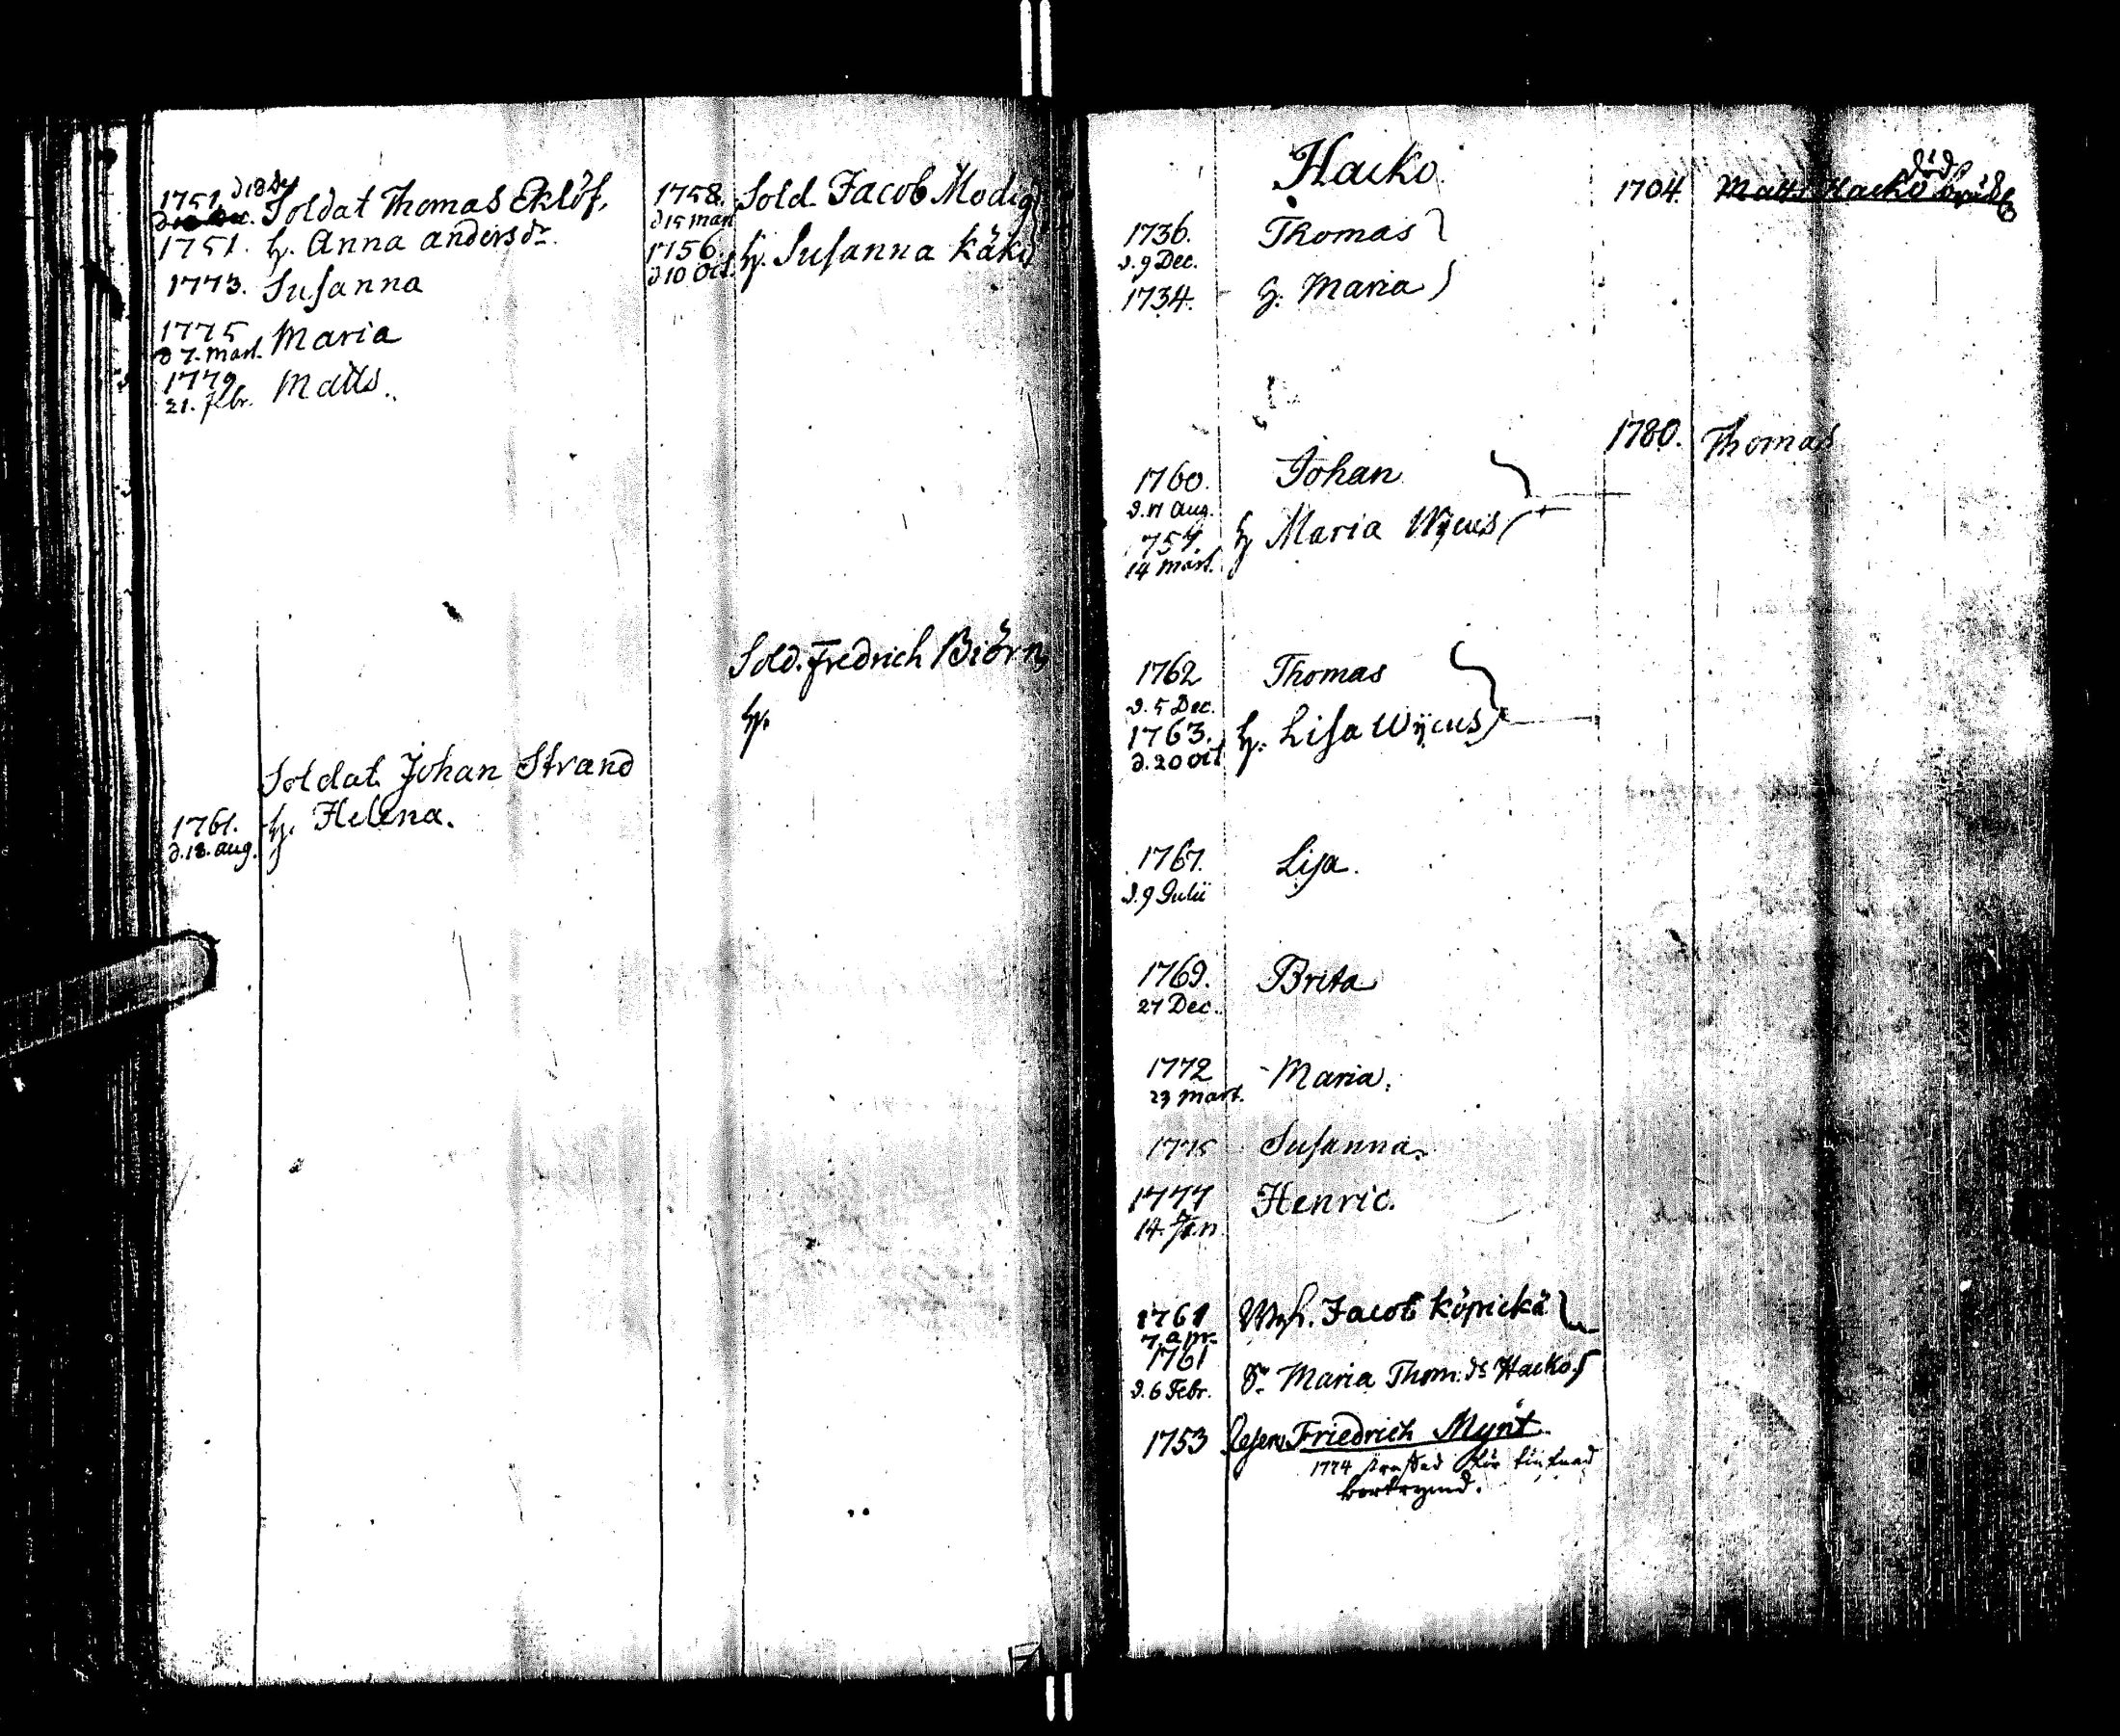 1751. d 18 Dec Soldat Thomas Eklöf,
1751. h. Anna andersdr.
1773. Susanna
1775 Maria
d 7. Mart.
1779 Matts.
21. febr.
Soldat Johan Strand
1761. h. Helena.
d. 18. aug.
1758. Sold. Jacob Modig
d 15 Mart
1756. h. Susanna Käki
d 10 Oct.
Sold. Fredrich Biörn
h.
Hacko.
1736. Thomas
d. 9 Dec.
1734. h. Maria
1760. Johan
d. 17 aug.
1757. h Maria Wijcus
14 Mart.
1762 Thomas
d. 5 Dec.
1763. h. Lisa Wijcus
d. 20 Oct
1767. Lisa.
d. 9 Julii
1769. Brita
27 Dec.
1772 Maria.
23 Mart.
1775 Susanna.
1777 Henric.
14. Jan.
1761 Mh. Jacob Köpickä
7 apr.
1761 Maria Thom. dr Hacko
d. 6 Febr.
1753 Friedrich Mynt
1774 straffad för
bortrymd.
1704. Matts Hacko död
1780. Thomas